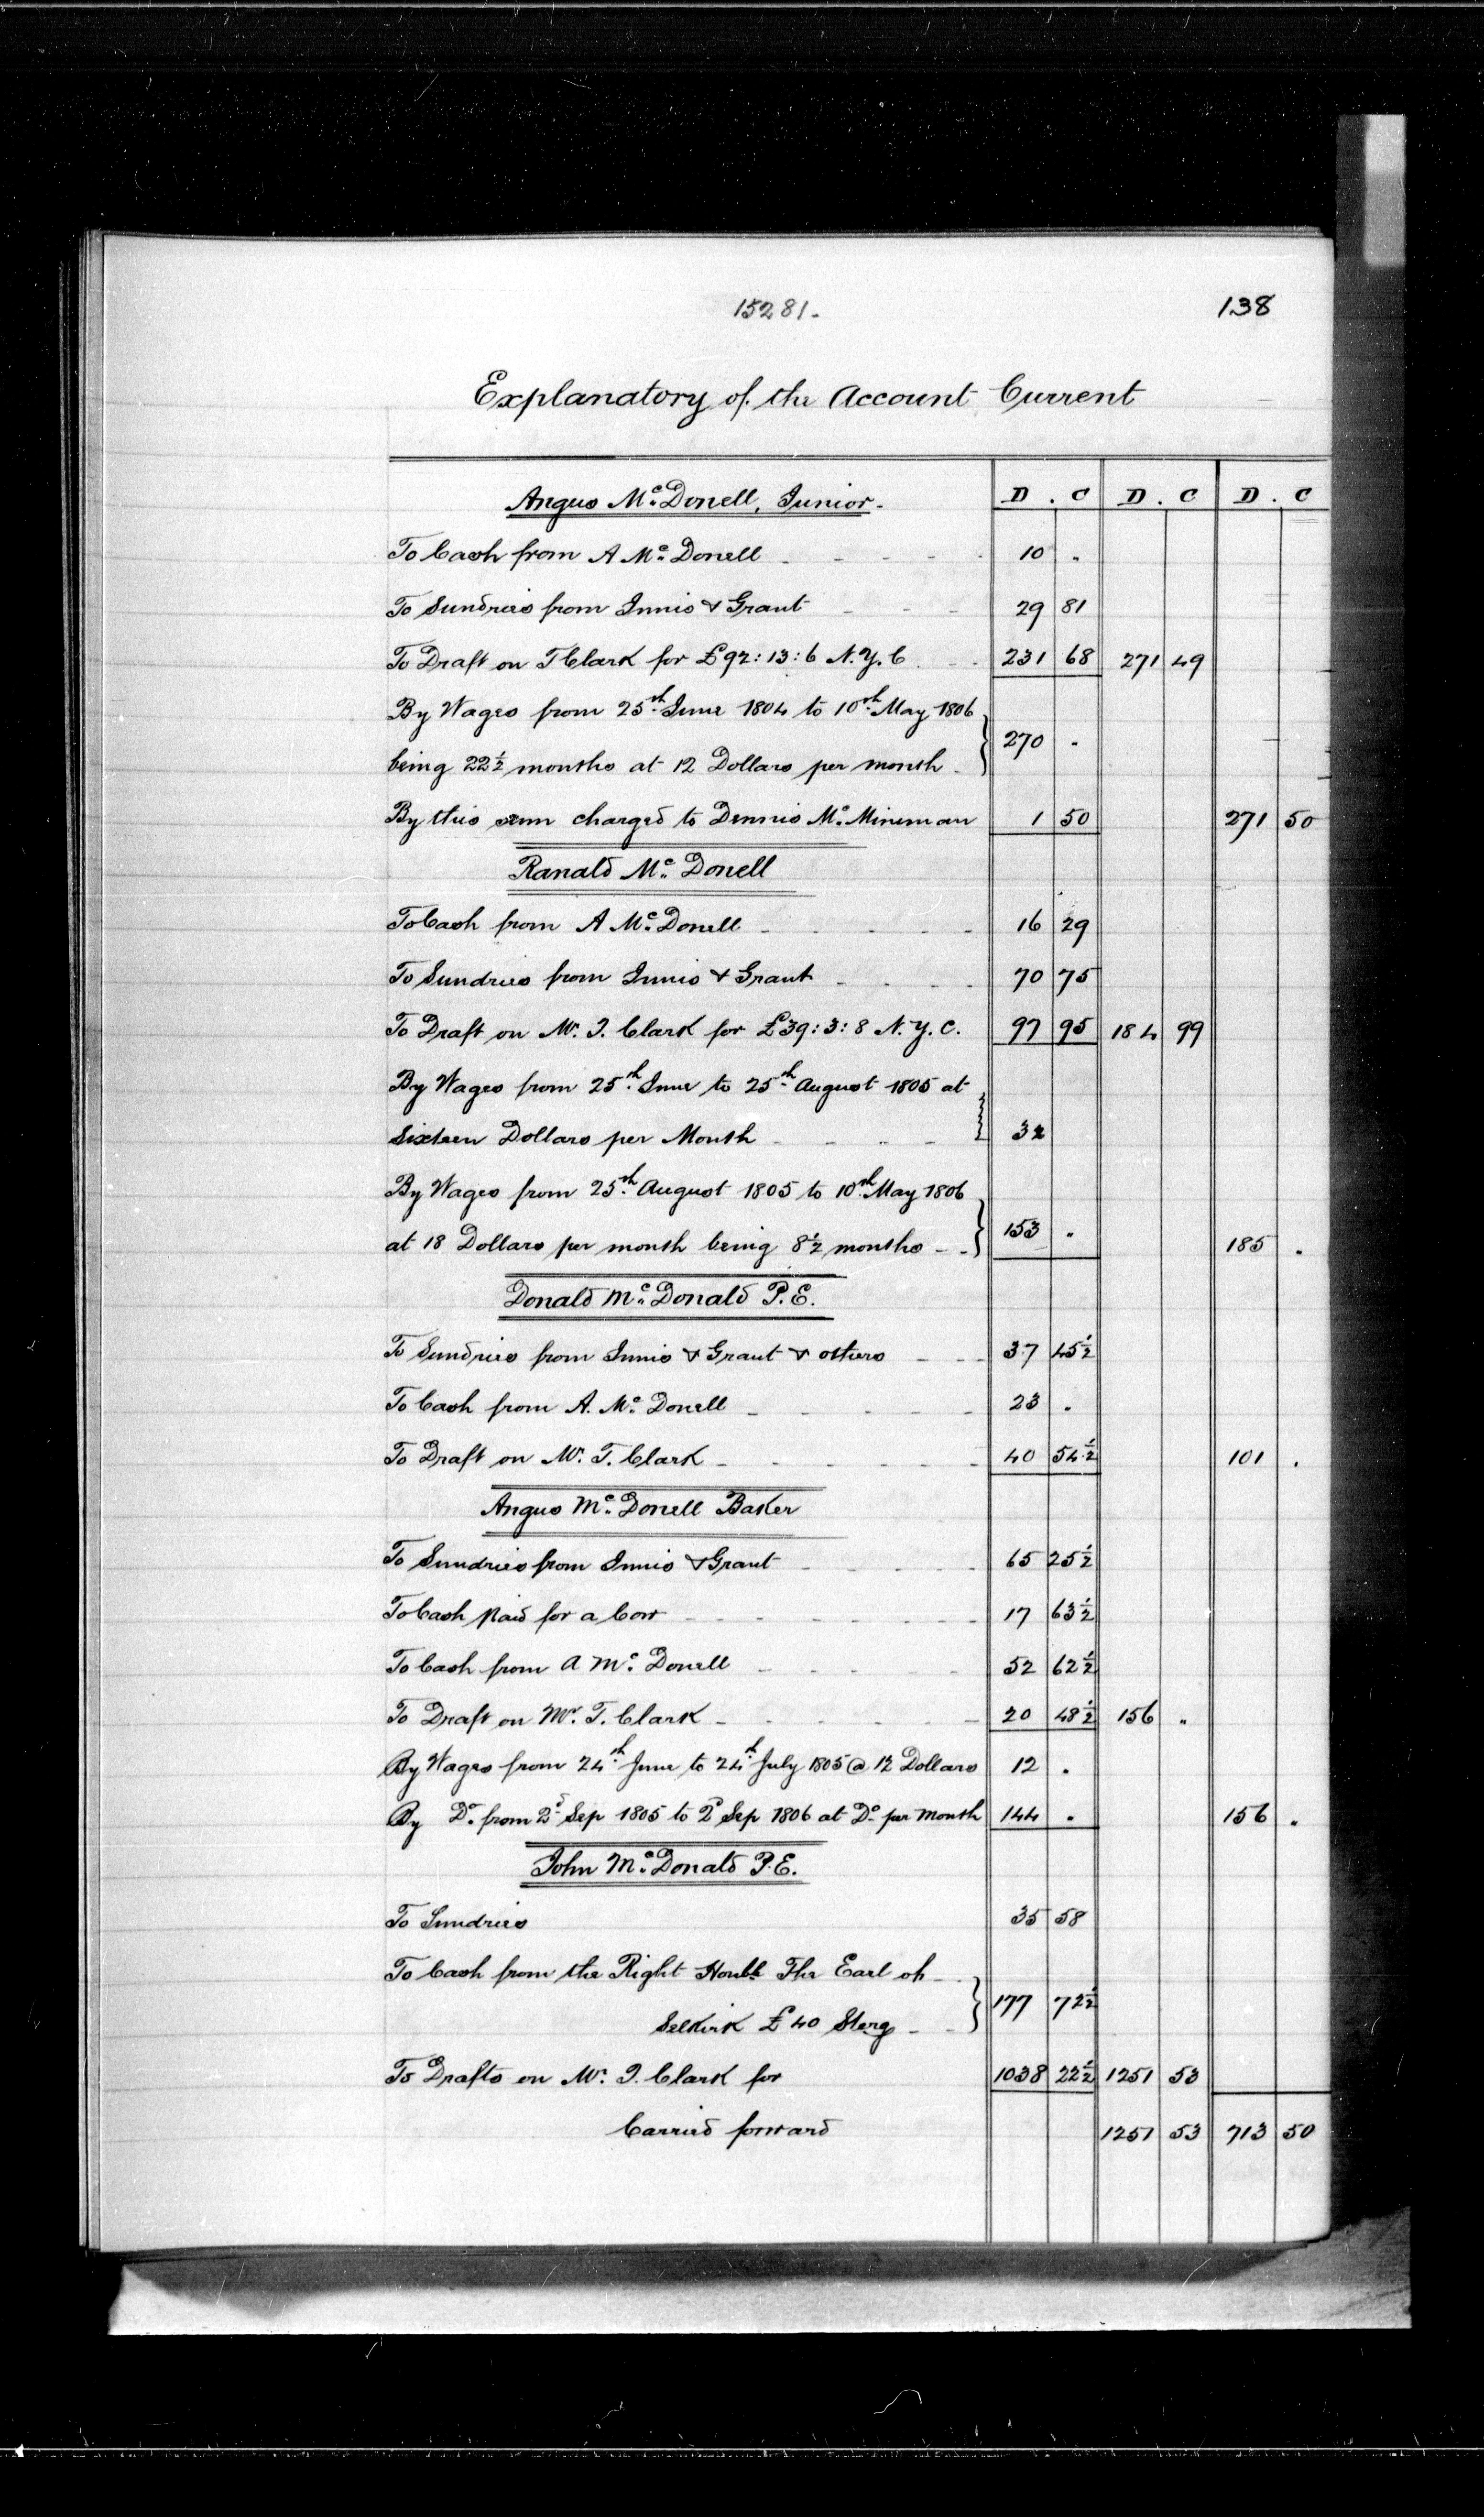 15281.
138
Explanatory of the Account Current
Angus Mc. Donell, Junior.
D . C D . C D . C
To Cash from A Mc. Donell 10 .
To Sundries from Innis & Grant 29 81
To Draft on T Clark for £92:13:6 N.Y.C 231 68 271 49
By Wages from 25th June 1804 to 10th May 1806
being 22½ months at 12 Dollars per month 270 .
By this sum charged to Dennis Mc. Mineman 1 50 271 50
Ranald Mc. Donell
To Cash from A Mc. Donell 16 29
To Sundries from Innis & Grant 70 75
To Draft on Mr. T. Clark for £39:3:8 N.Y.C. 97 95 184 99
By Wages from 25th June to 25th August 1805 at
Sixteen Dollars per Month 32
By Wages from 25th August 1805 to 10th May 1806
at 18 Dollars per month being 8½ months 153 . 185 .
Donald Mc. Donald P.E.
To Sundries from Innis & Grant & others 37 45½
To Cash from A. Mc. Donell 23 .
To Draft on Mr. T. Clark 40 54½ 101 .
Angus Mc. Donell Baker
To Sundries from Innis & Grant 65 25½
To Cash Paid for a Cow 17 63½
To Cash from A Mc. Donell 52 62½
To Draft on Mr. T. Clark 20 48½ 156 .
By Wages from 24th June to 24th July 1805 @ 12 Dollars 12 .
By Do. from 2d Sep 1805 to 2d Sep 1806 at Do. per Month 144 . 156 .
John Mc. Donald P.E.
To Sundries 35 58
To Cash from the Right Honble The Earl of
Selkirk £40 Sterg 177 72½
To Drafts on Mr. T. Clark for 1038 22½ 1251 53
Carried forward 1251 53 713 50